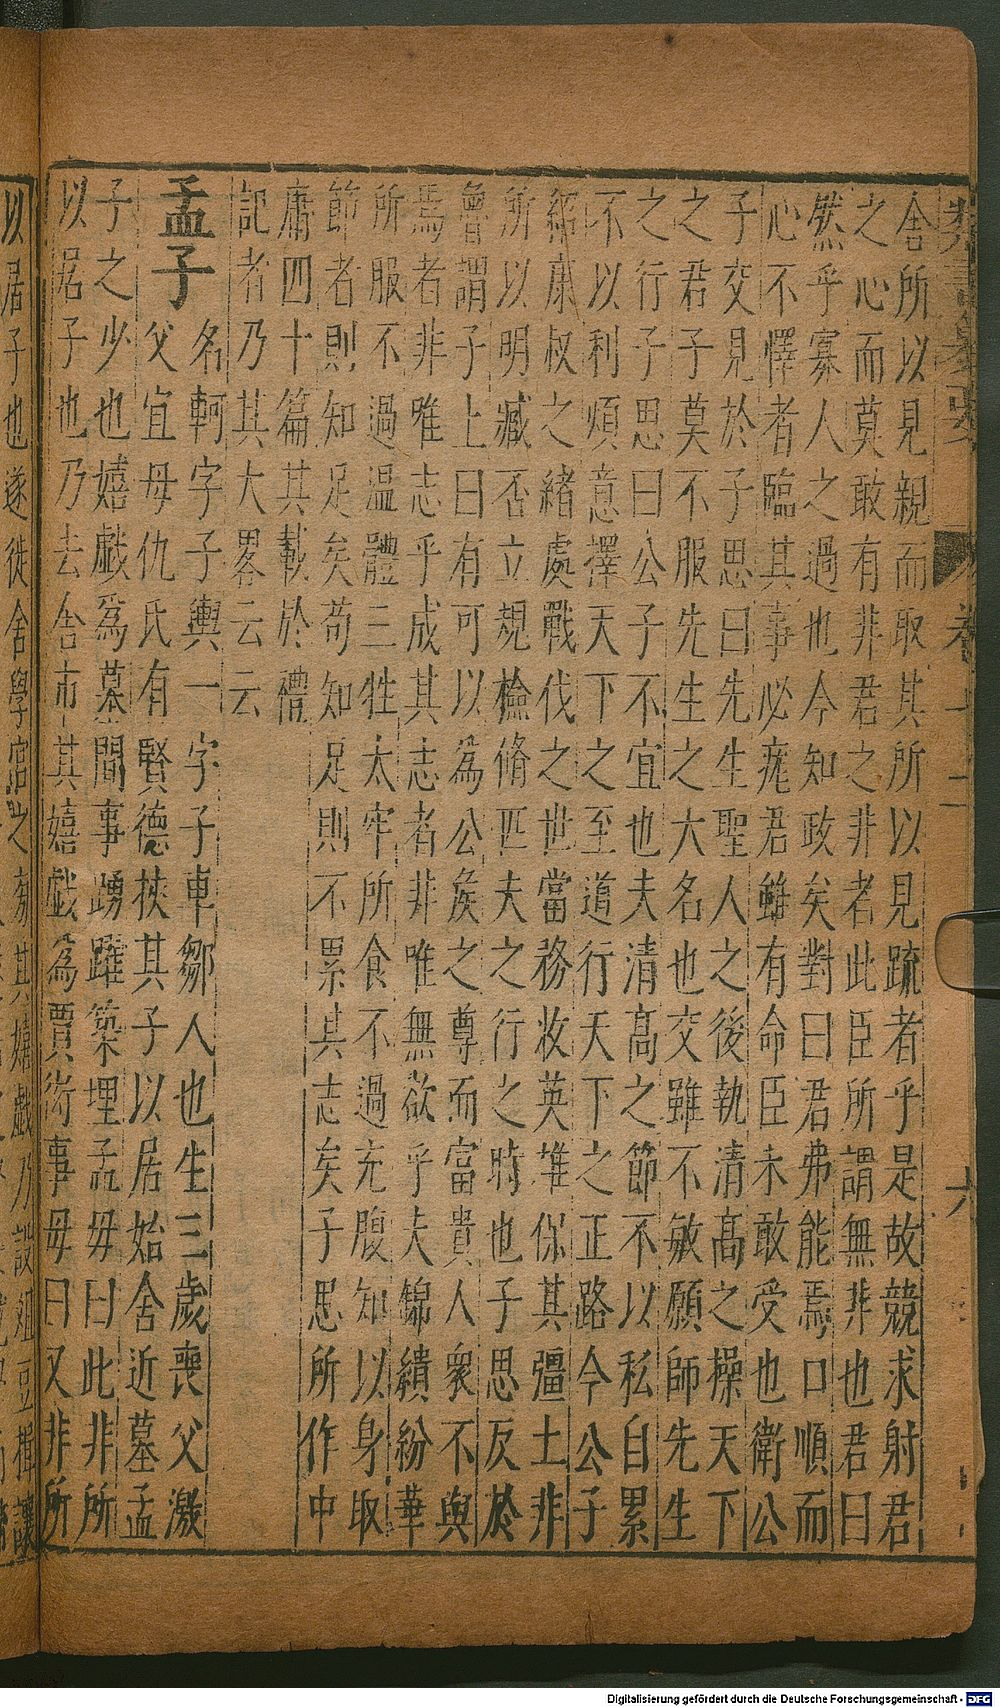 舍所以見親而取其所以見疏者乎是故競求射君
之心而莫敢有非君之非者此臣所謂無非也君曰
然乎寡人之過也今知政矣對曰君弗能焉口順而
心不懌者臨其事必疣君雖有命臣未敢受也衛公
子交見於子思曰先生聖人之後執清髙之操天下
之君子莫不服先生之大名也交雖不敏願師先生
之行子思曰公子不宜也夫清髙之節不以私自累
不以利煩意擇天下之至道行天下之正路今公子
紹康叔之緒處戰伐之世當務收英雄保其彊土非
所以明臧否立規檢脩匹夫之行之時也子思反於
魯謂子上曰有可以為公矦之尊而富貴人衆不與
焉者非唯志乎成其志者非唯無欲乎夫錦繢紛華
所服不過温體三牲太牢所食不過充腹知以身取
節者則知足矣苟知足則不累其志矣子思所作中
庸四十篇其載於禮
記者乃其大畧云云
孟子
名軻字子輿一字子車鄒人也生三歲喪父激
父宜母仇氏有賢德挾其子以居始舍近墓孟
子之少也嬉戲爲墓間事踴躍築埋孟母曰此非所
以居子也乃去舍市其嬉戲為賈衒事母曰又非所
以居子也遂徙舍學宮之旁其嬉戲乃設俎豆揖讓
卷十二
六
Digitalisierung gefördert durch die Deutsche Forschungsgemeinschaft - DFG